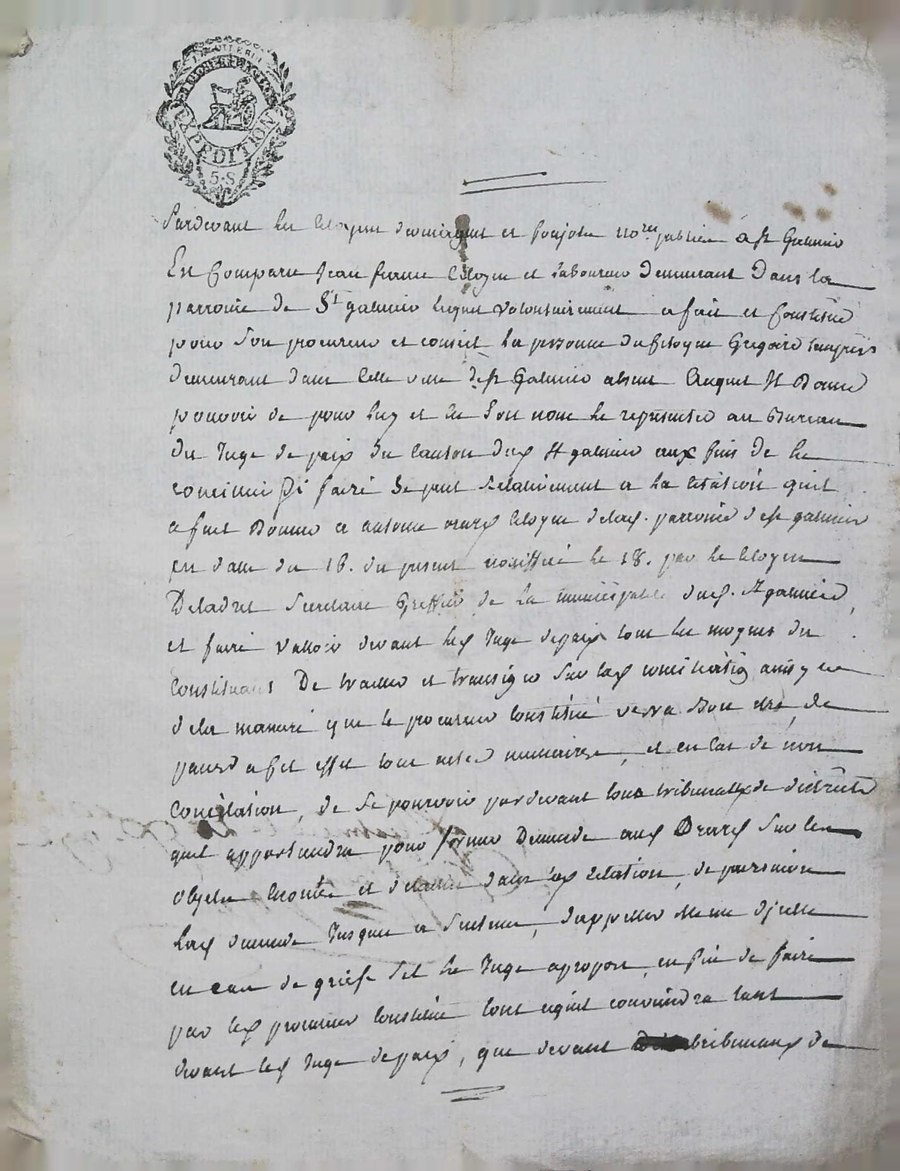 EXPEDITION
5.S
Pardevant les Citoyens et nores publics a St Galmier
Est Comparu Jean pierre Citoyen et Laboureur Demeurant Dans la
parroisse de St galmier lequel volontairement a fait et Constitué
pour Son procureur et conseil la personne du Citoyen Gregoire
demeurant dans Cette ville de St Galmier absent auquel Il Donne
pouvoir de pour luy et en Son nom le representer au Bureau
du Juge de paix du Canton dud St galmier aux fins de la
Si faire Se peut Relativement a la Citation quil
a fait Donner a antoine Citoyen de lad. parroisse de St galmier
en date du 16. du present le 18. par le Citoyen
Secretaire Greffier de la municipalité dud. St galmier,
et faire valloir devant led Juge de paix tout les moyens du
Constituant De traiter et transiger Sur lad conciliation ainsy et
de la maniere que le procureur Constitué verra Bon etre, de
passer a cet effet tout actes necessaires, et en Cas de non
Conciliation, de Se pourvoir pardevant tous tribunaux de districts
quil appartiendra pour former Demande aux Sur les
objets Enoncés et detaillés dans lad Citation, de poursuivre
Lad demande Jusques a Sentence, d'appeller Meme d'icelle
en cas de griefs Sil le Juge apropos, enfin de faire
par led procureur Constitué tout ce quil conviendra tant
devant led Juge de paix, que devant tribunaux de